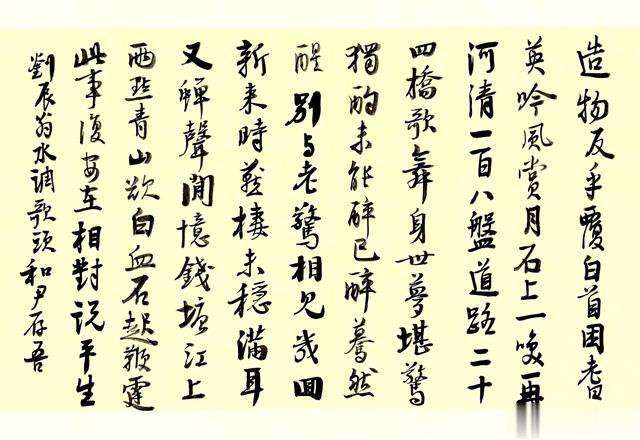 造物反乎覆白首困耆
英吟風賞月石上一咲再
河清一百八盤道路二十
四橋歌舞身世夢堪驚
獨酌未能醉已醉驀然
醒別与老驚相見幾回
新来時燕棲未穩滿耳
又蟬聲閒憶錢塘江上
兩點青山欲白血石起鞭霆
此事復安在相對説平生
劉辰翁水調歌頭和尹存吾